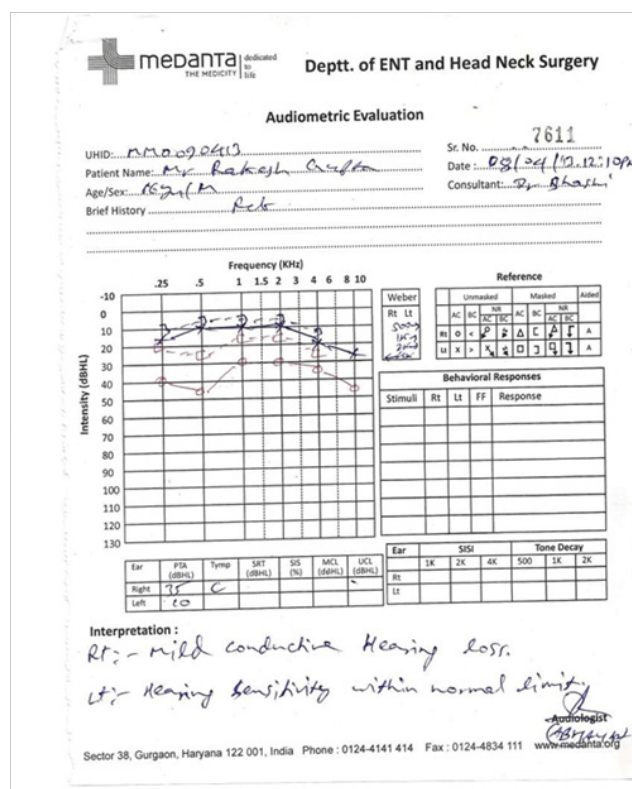 medanta
THE MEDICITY
dedicated
to
life
Deptt. of ENT and Head Neck Surgery
Audiometric Evaluation
UHID: MM0090413
Sr. No. 7611
Patient Name: Mr Rakesh Gupta
Date: 08/04/ 12:10pm
Age/Sex: /M
Consultant: Dr
Brief History
Frequency (KHz)
.25 .5 1 1.5 2 3 4 6 8 10
Intensity (dBHL)
-10
0
10
20
30
40
50
60
70
80
90
100
110
120
130
Weber
Rt Lt
Reference
Unmasked Masked Aided
AC BC NR AC BC NR
AC BC AC BC
Rt O < Δ [ A
Lt X > □ ] A
Behavioral Responses
Stimuli Rt Lt FF Response
Ear PTA (dBHL) Tymp SRT (dBHL) SIS (%) MCL (ddHL) UCL (dBHL)
Right 35 C
Left 10
Ear SISI Tone Decay
1K 2K 4K 500 1K 2K
Rt
Lt
Interpretation :
Rt:- Mild conductive Hearing loss.
Lt:- Hearing Sensitivity within normal limit
Audiologist
Sector 38, Gurgaon, Haryana 122 001, India Phone : 0124-4141 414 Fax : 0124-4834 111 www.medanta.org